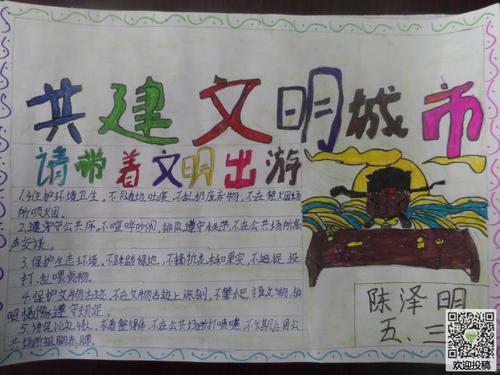 共建文明城市
请带着文明出游
1.维护环境卫生，不随地吐痰，不乱扔废弃物，不在禁烟场
所吸烟。
2.遵守公共序，不喧哗吵闹，排队遵守秩序，不在公共场所高
声交谈。
3.保护生态环境，不踩踏绿地，不摘折花木和果实，不追捉、投
打、乱喂动物。
4.保护文物古迹，不在文物古迹上涂刻，不攀爬文物，拍
照摄像遵守规定。
5.讲究以礼待人，衣着整洁，不在公共场所打喷嚏，不长期占用公
共
陈泽明
五、三
欢迎投稿